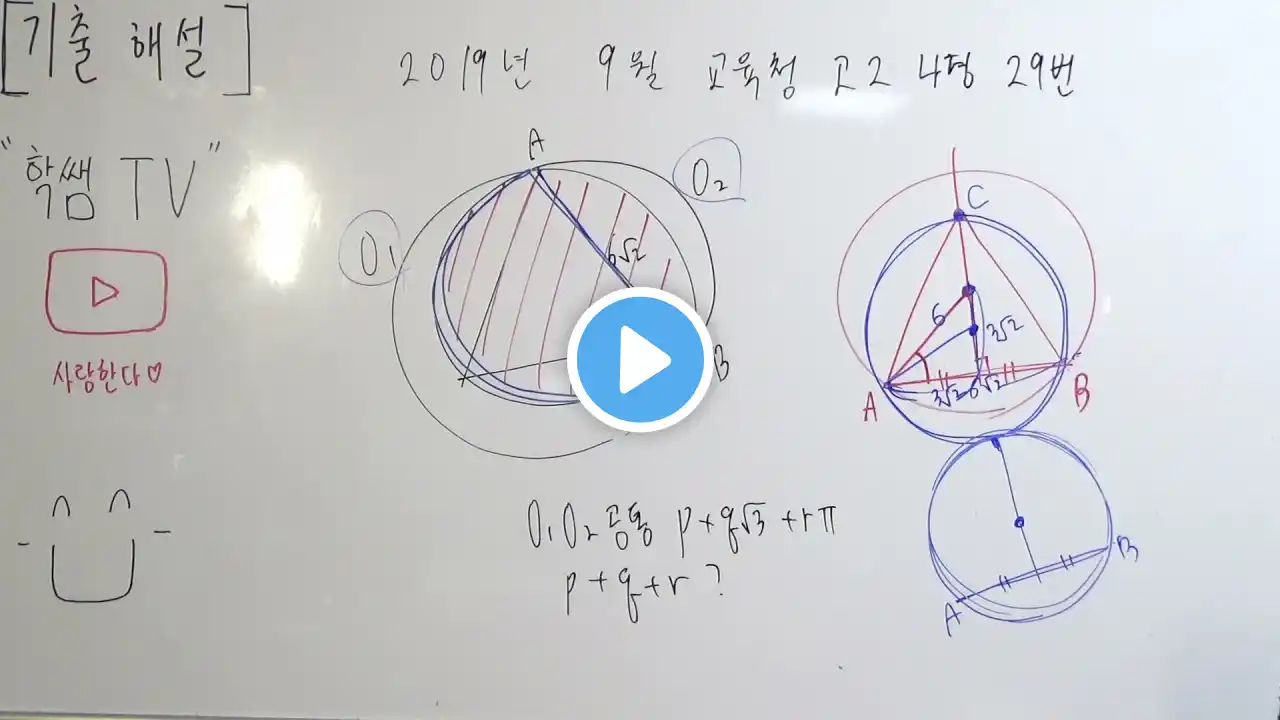 [기출 해설]
2019년 9월 교육청 고2 나형 29번
"함쌤 TV"
사랑한다♡
A
O₂
O₁
6√2
B
C
6
3√2
3√2
6√2
A
B
O₁O₂ 공통 p+q√3+rπ
p+q+r ?
B
A